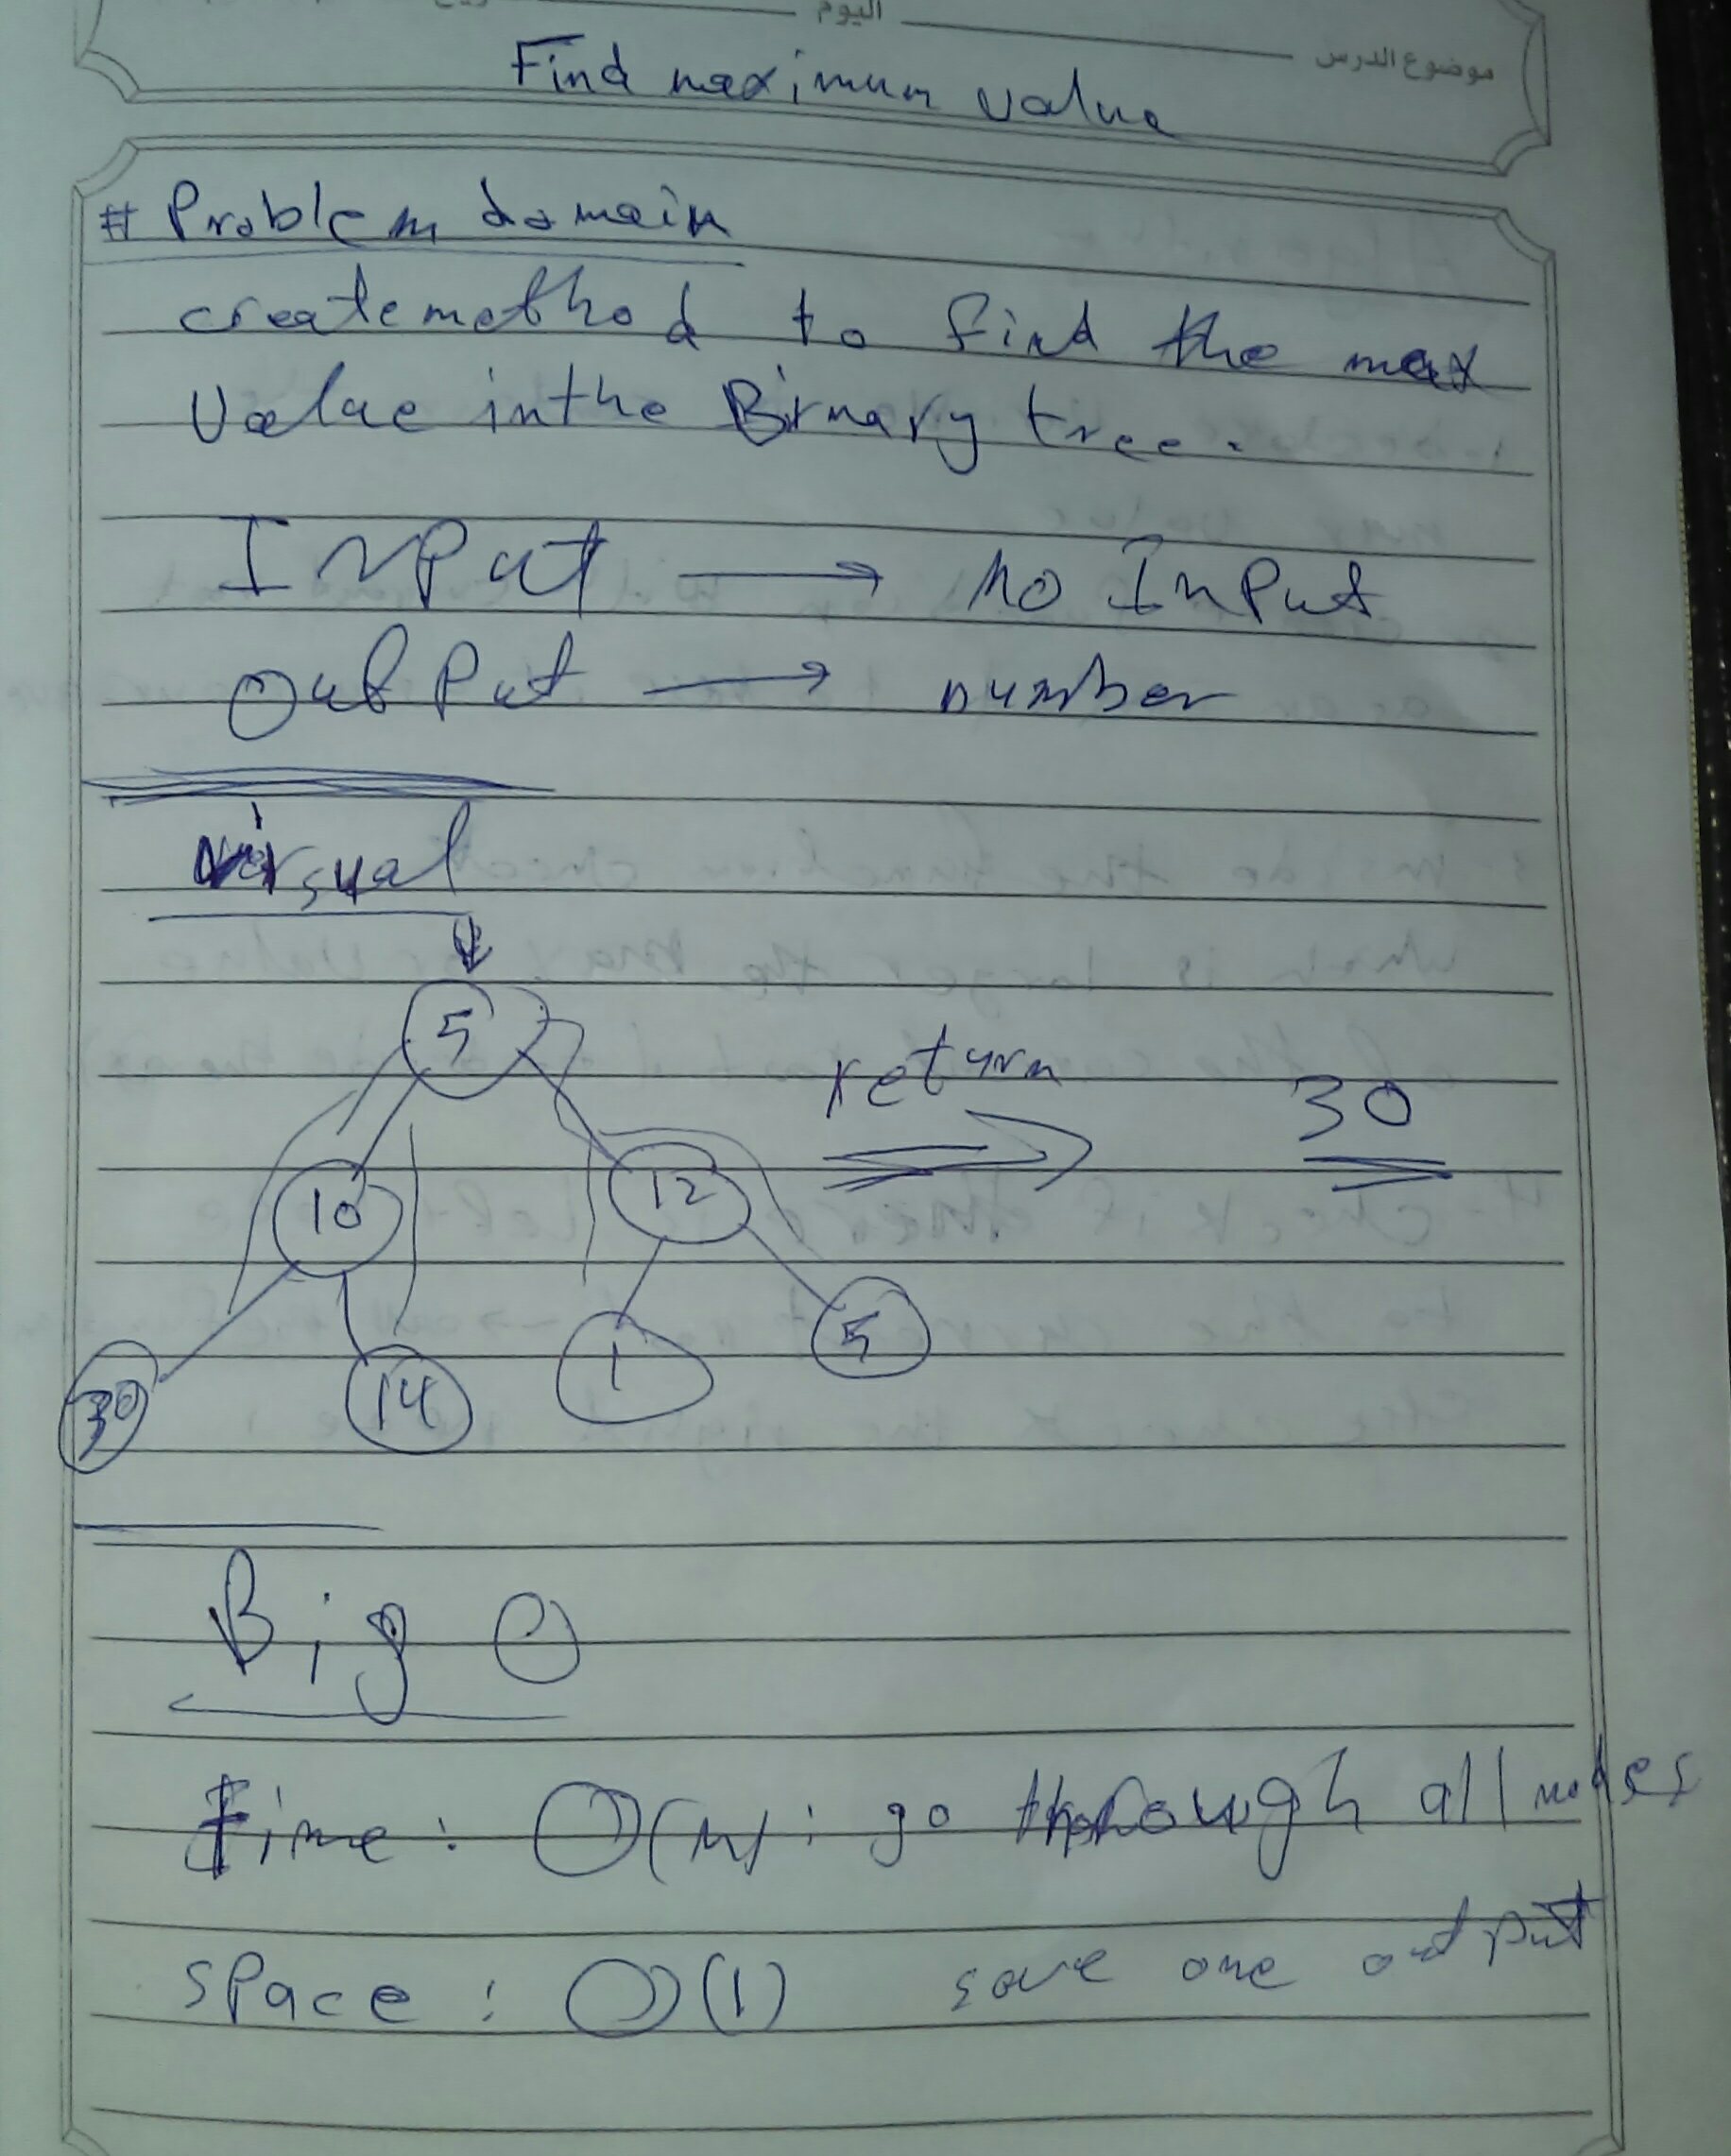 اليوم
موضوع الدرس
Find maximum value
# Problem domain
create method to find the max
Value in the Binary tree.
InPut → no InPut
outPut → number
visual
5
return 30
10 12
30 14 1 5
Big O
time: O(n) : go thorough all nodes
sPace : O(1) save one output